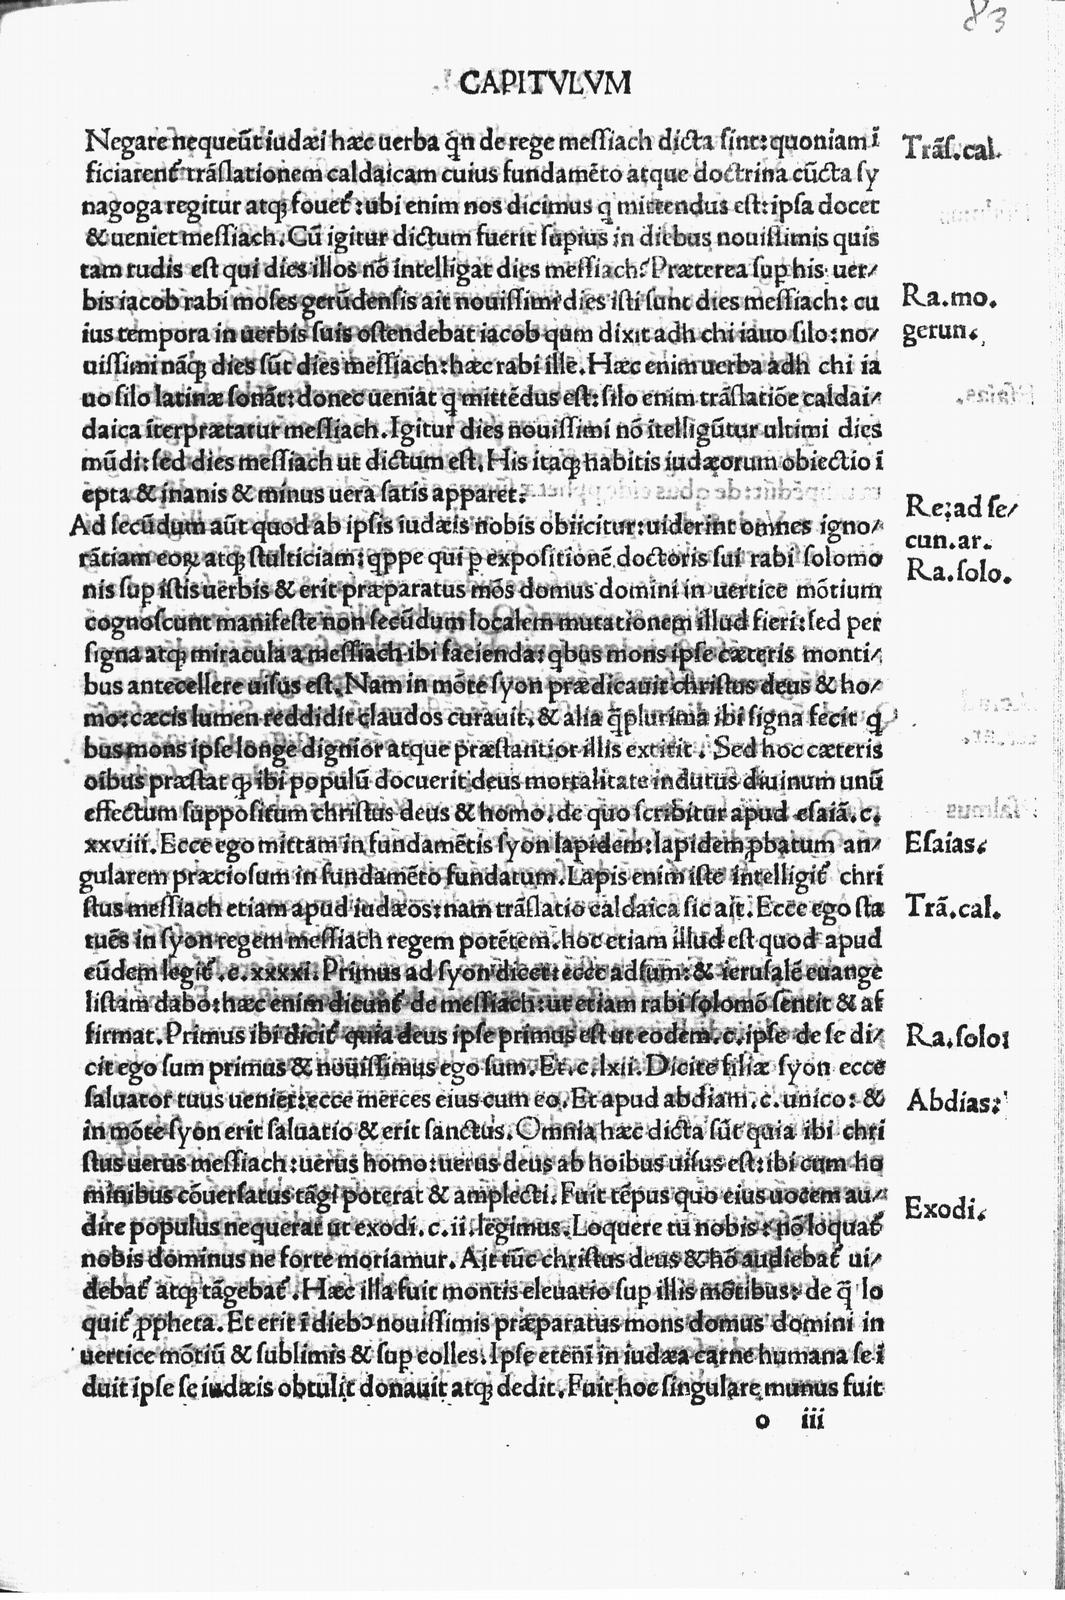 83
CAPITVLVM
Negare nequeũt iudæi hæc uerba q̃n de rege meſſiach dicta ſint: quoniam ĩ
Trãſ.cal.
ficiarent᷑ trãſlationem caldaicam cuius fundamẽto atque doctrina cũcta ſy
nagoga regitur atq; fouet᷑: ubi enim nos dicimus q mittendus eſt: ipſa docet
& ueniet meſſiach. Cũ igitur dictum fuerit ſupius in diebus nouiſſimis quis
tam rudis eſt qui dies illos nõ intelligat dies meſſiach? Præterea ſup his uer⸗
bis iacob rabi moſes gerũdenſis ait nouiſſimi dies iſti ſunt dies meſſiach: cu
Ra.mo.
ius tempora in uerbis ſuis oſtendebat iacob qum dixit adh chi iauo ſilo: no⸗
gerun.
uiſſimi nãq; dies ſũt dies meſſiach: hæc rabi ille. Hæc enim uerba adh chi ia
uo ſilo latinæ ſonãt: donec ueniat q mittẽdus eſt: ſilo enim trãſlatiõe caldai⸗
daica ĩterprætatur meſſiach. Igitur dies nouiſſimi nõ ĩtelligũtur ultimi dies
mũdi: ſed dies meſſiach ut dictum eſt. His itaq; habitis iudæorum obiectio ĩ
epta & inanis & minus uera ſatis apparet.
Ad ſecũdum aũt quod ab ipſis iudæis nobis obiicitur: uiderint omnes igno⸗
Re; ad ſe⸗
cun.ar.
rãtiam eoꝝ atq; ſtulticiam: qppe qui p expoſitionẽ doctoris ſui rabi ſolomo
Ra.ſolo.
nis ſup iſtis uerbis & erit præparatus mõs domus domini in uertice mõtium
cognoſcunt manifeſte non ſecũdum localem mutationem illud fieri: ſed per
ſigna atq; miracula a meſſiach ibi facienda: qbus mons ipſe cæteris monti⸗
bus antecellere uiſus eſt. Nam in mõte ſyon prædicauit chriſtus deus & ho⸗
mo: cæcis lumen reddidit claudos curauit, & alia q̃plurima ibi ſigna fecit q
bus mons ipſe longe dignior atque præſtantior illis extitit. Sed hoc cæteris
oibus præſtat q; ibi populũ docuerit deus mortalitate indutus diuinum unũ
effectum ſuppoſitum chriſtus deus & homo. de quo ſcribitur apud eſaiã. c.
xxviii. Ecce ego mittam in fundamẽtis ſyon lapidem: lapidem ꝓbatum an⸗
Eſaias.
gularem præcioſum in fundamẽto fundatum. Lapis enim iſte intelligit᷑ chri
ſtus meſſiach etiam apud iudæos: nam trãſlatio caldaica ſic ait. Ecce ego ſta
Trã.cal.
tuẽs in ſyon regem meſſiach regem potẽtem. hoc etiam illud eſt quod apud
eũdem legit᷑. c. xxxxi. Primus ad ſyon dicet: ecce adſum: & ieruſalẽ euange
liſtam dabo: hæc enim dicunt᷑ de meſſiach: ut etiam rabi ſolomõ ſentit & af
firmat. Primus ibi dicit᷑ quia deus ipſe primus eſt ut eodem. c. ipſe de ſe di⸗
Ra.ſolo:
cit ego ſum primus & nouiſſimus ego ſum. Et. c. lxii. Dicite filiæ ſyon ecce
ſaluator tuus ueniet: ecce merces eius cum eo. Et apud abdiam. c. unico: &
Abdias:
in mõte ſyon erit ſaluatio & erit ſanctus. Omnia hæc dicta ſũt quia ibi chri
ſtus uerus meſſiach: uerus homo: uerus deus ab hoibus uiſus eſt: ibi cum ho
minibus cõuerſatus tãgi poterat & amplecti. Fuit tẽpus quo eius uocem au⸗
dire populus nequerat ut exodi. c. ii. legimus. Loquere tu nobis: nõ loquat᷑
Exodi.
nobis dominus ne forte moriamur. Ait tũc chriſtus deus & hõ audiebat᷑ ui⸗
debat᷑ atq; tãgebat᷑. Hæc illa fuit montis eleuatio ſup illis mõtibus: de q̃ lo
quit᷑ ꝓpheta. Et erit ĩ dieb⁹ nouiſſimis præparatus mons domus domini in
uertice mõtiũ & ſublimis & ſup colles. Ipſe etenĩ in iudæa carne humana ſe ĩ
duit ipſe ſe iudæis obtulit donauit atq; dedit. Fuit hoc ſingulare munus fuit
o iii